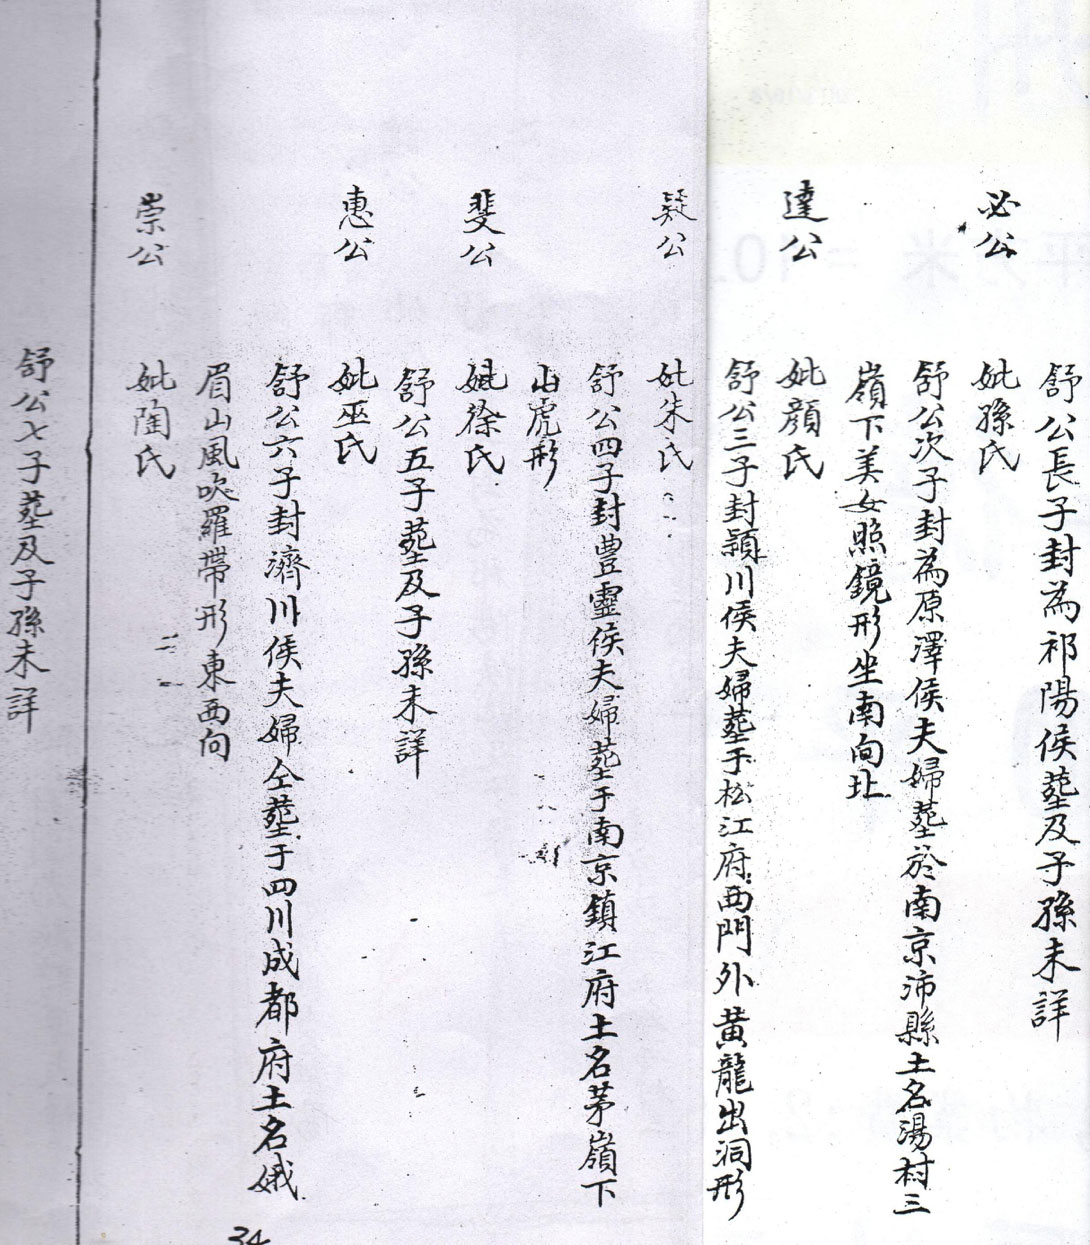 舒公長子封為祁陽侯塟及子孫未詳
必公
妣孫氏
舒公次子封為原澤侯夫婦塟於南京沛縣土名湯村三
嶺下美女照鏡形坐南向北
達公
妣顔氏
舒公三子封頴川侯夫婦塟于松江府西門外黄龍出洞形
疑公
妣朱氏
舒公四子封豊靈侯夫婦塟于南京鎮江府土名茅嶺下
山虎形
斐公
妣徐氏
舒公五子塟及子孫未詳
惠公
妣巫氏
舒公六子封濟川侯夫婦仝塟于四川成都府土名娥
眉山風吹羅帶形東西向
崇公
妣陶氏
舒公七子塟及子孫未詳
34